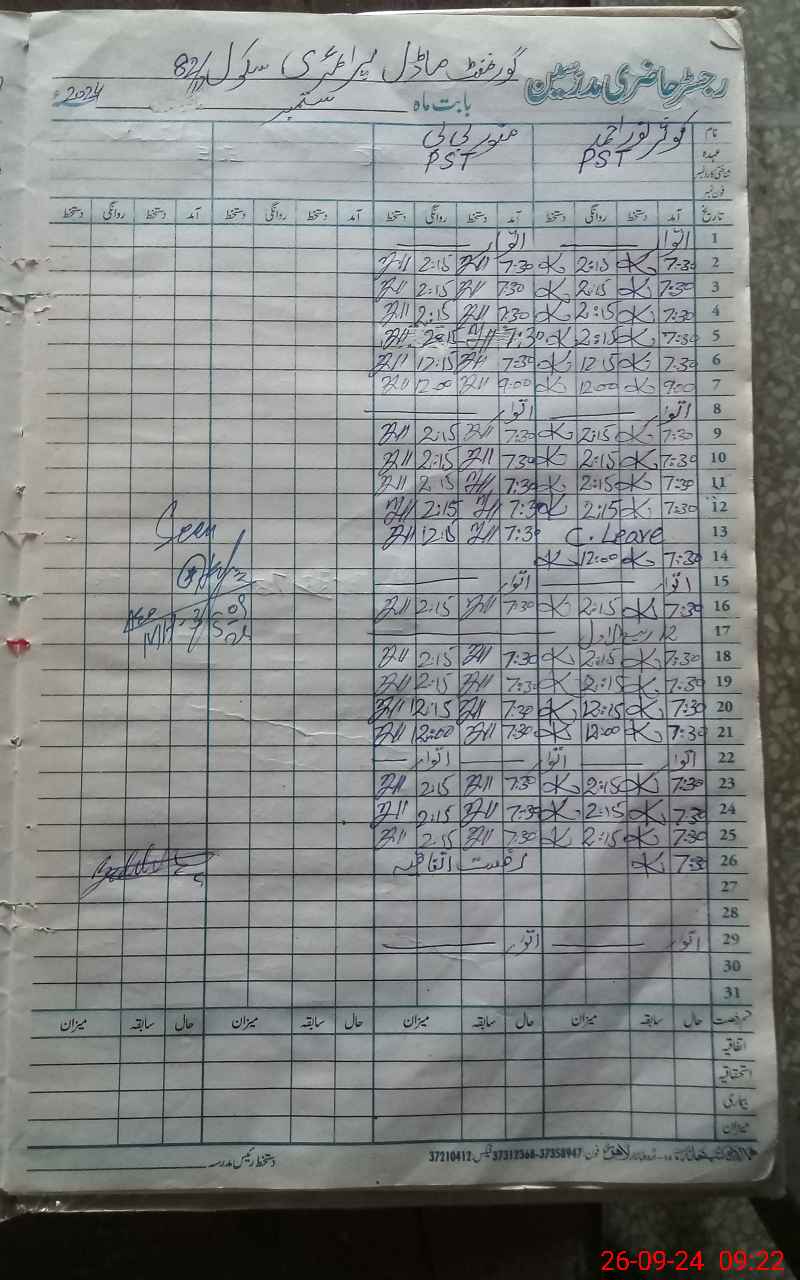 گورنمنٹ ماڈل پرائمری سکول 82/
رجسٹر حاضری مدرسین
بابت ماہ ستمبر 2024ء
نام کوثر نور احمد منور بی بی
عہدہ PST PST
شناختی کارڈ نمبر
فون نمبر
تاریخ آمد دستخط روانگی دستخط آمد دستخط روانگی دستخط آمد دستخط روانگی دستخط آمد دستخط روانگی دستخط
1 اتوار اتوار
2 7:30 2:15 7:30 2:15
3 7:30 2:15 7:30 2:15
4 7:30 2:15 7:30 2:15
5 7:30 2:15 7:30 2:15
6 7:30 12:15 7:30 12:15
7 9:00 12:00 9:00 12:00
8 اتوار اتوار
9 7:30 2:15 7:30 2:15
10 7:30 2:15 7:30 2:15
11 7:30 2:15 7:30 2:15
12 7:30 2:15 7:30 2:15
13 C. Leave 7:30 12:15
14 7:30 12:00
15 اتوار اتوار
16 7:30 2:15 7:30 2:15
17 12 ربیع الاول
18 7:30 2:15 7:30 2:15
19 7:30 2:15 7:30 2:15
20 7:30 12:15 7:30 12:15
21 7:30 12:00 7:30 12:00
22 اتوار اتوار اتوار
23 7:30 2:15 7:30 2:15
24 7:30 2:15 7:30 2:15
25 7:30 2:15 7:30 2:15
26 7:30 رخصت اتفاقیہ
27
28
29 اتوار اتوار
30
31
Seen
قسم رخصت حال سابقہ میزان حال سابقہ میزان حال سابقہ میزان حال سابقہ میزان
اتفاقیہ
استحقاقیہ
بیماری
میزان
دستخط رئیس مدرسہ
لاہور فون: 37358947-37312368 فیکس: 37210412
26-09-24 09:22